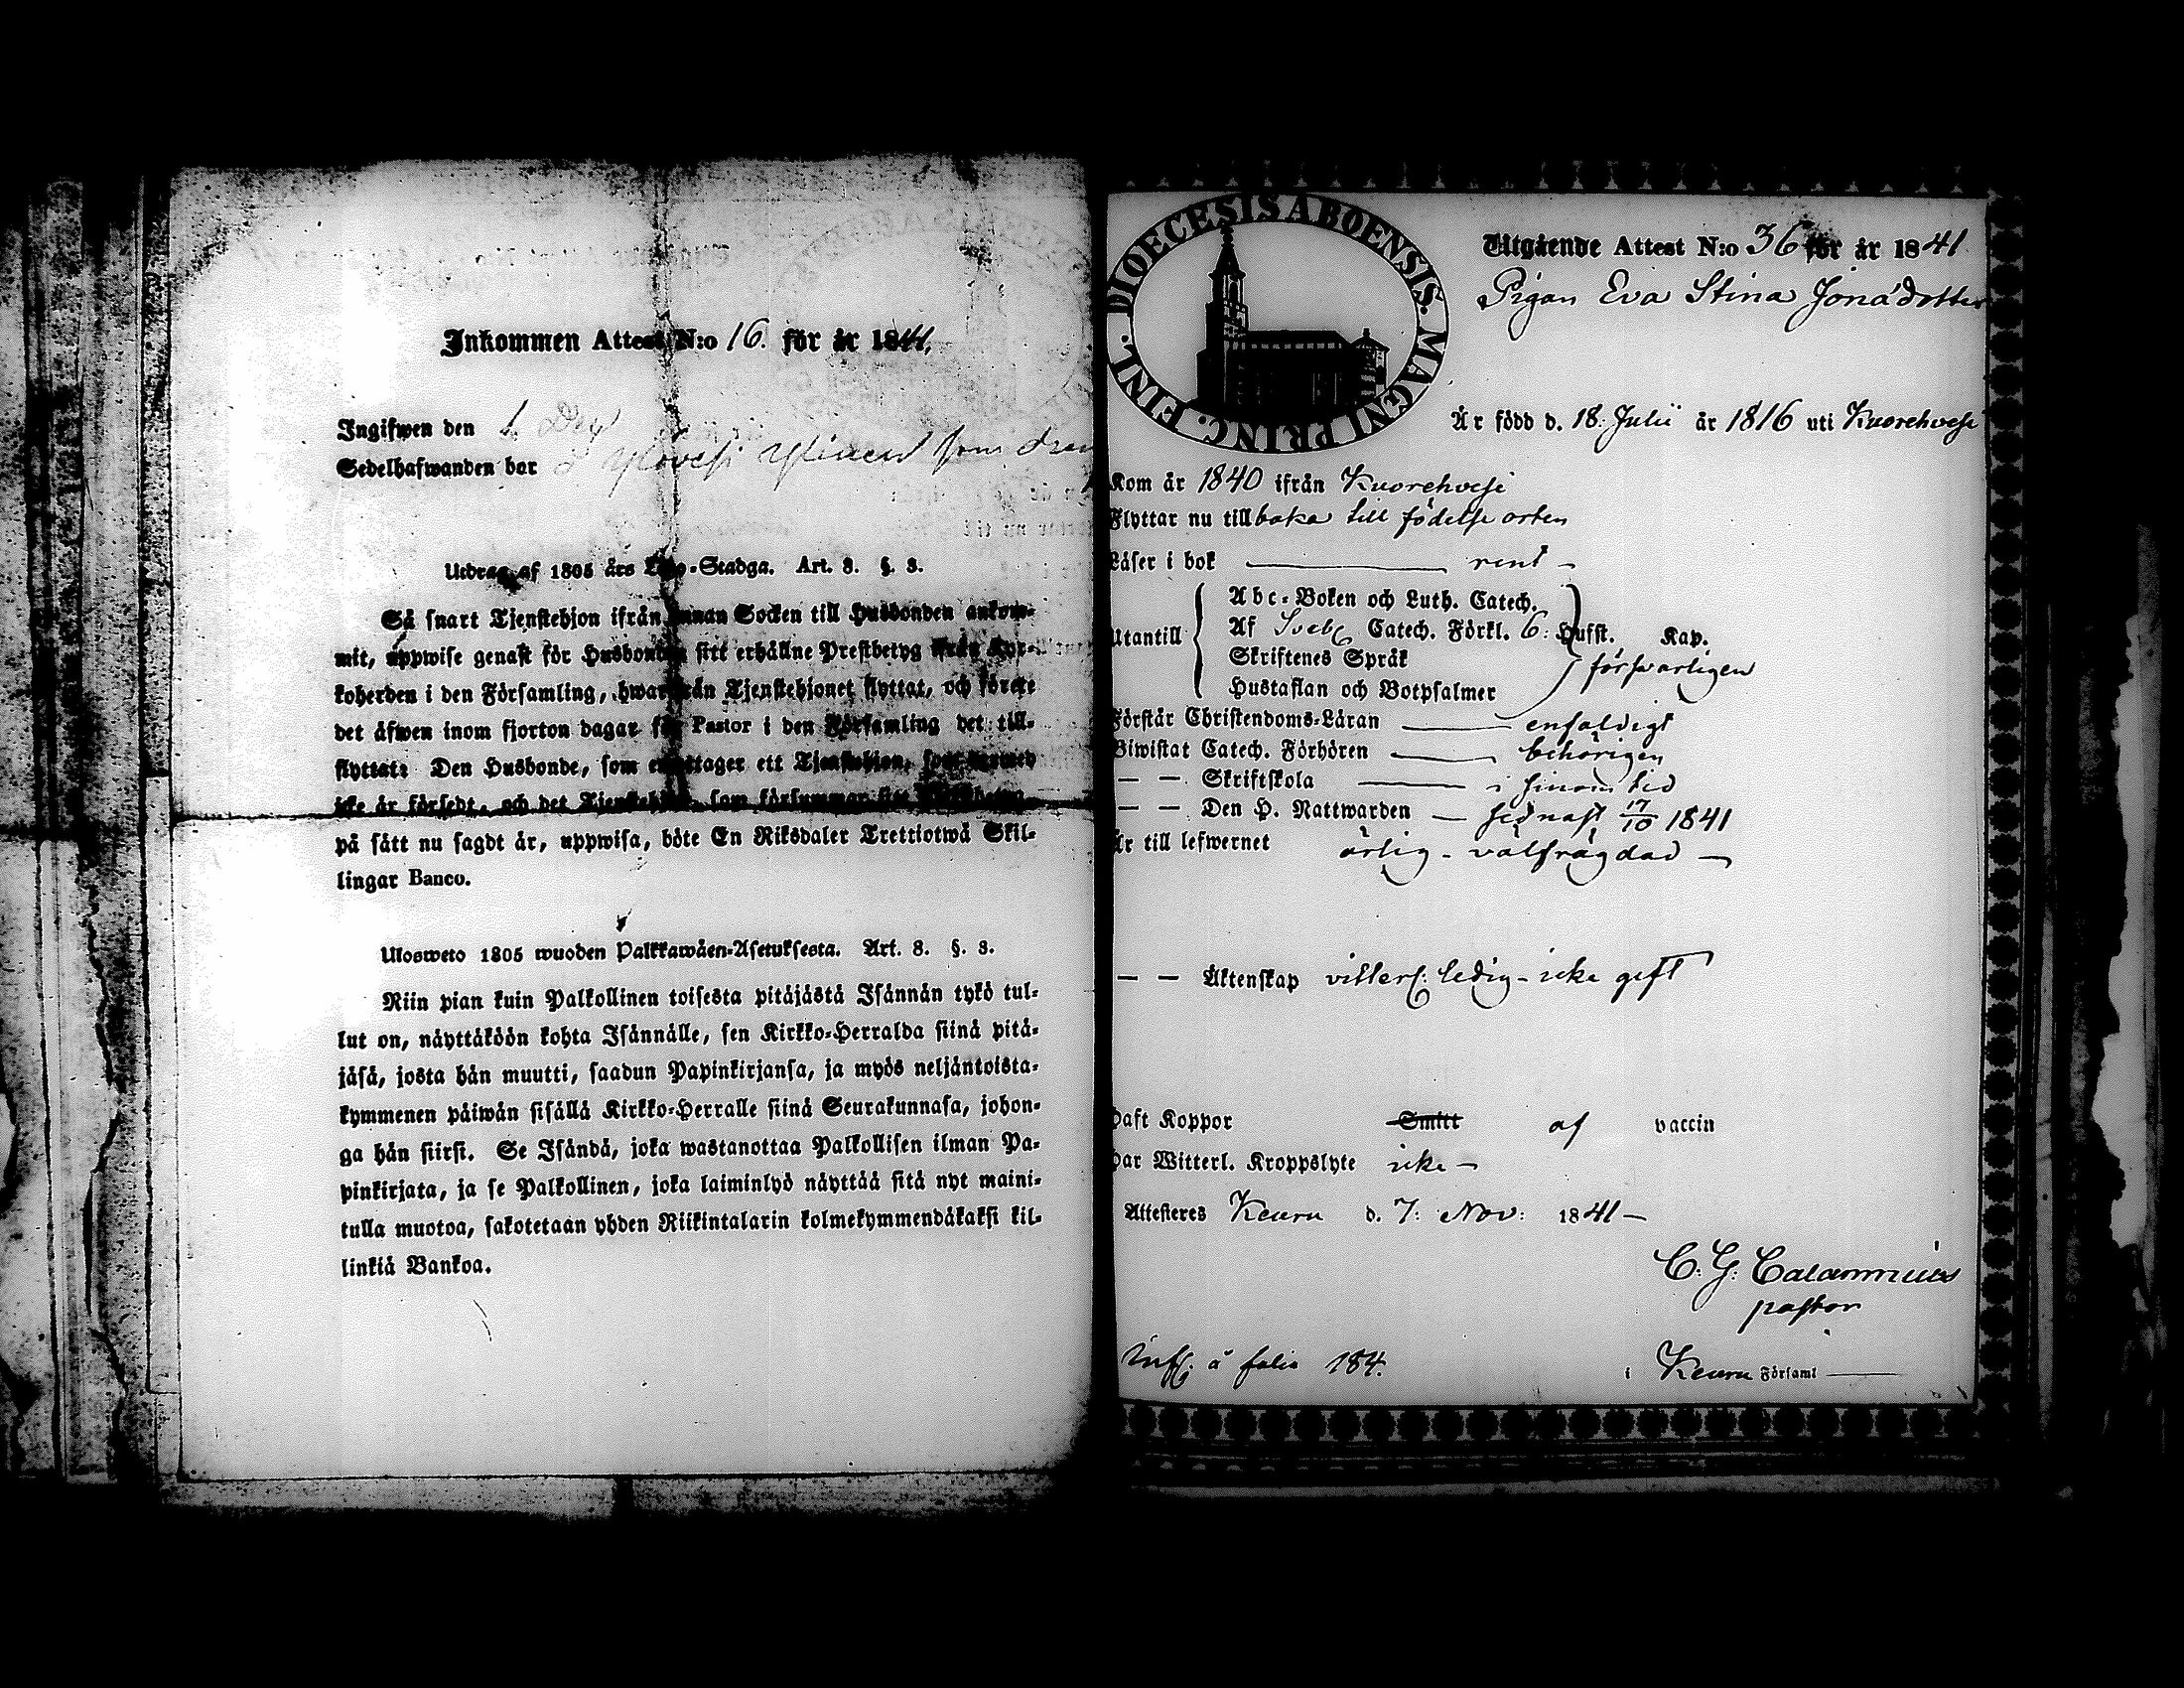 Inkommen Attest N:o 16. för år 1841.
Ingifwen den 1. Dec
Sedelhafwanden bor
Utdrag af 1805 års Lego-Stadga. Art. 8. §. 3.
Så snart Tjenstehjon ifrån annan Socken till Husbonden ankom-
mit, uppwise genast för Husbonden sitt erhållne Prestbetyg ifrån Kyr-
koherden i den Församling, hwarifrån Tjenstehjonet flyttat, och förete
det äfwen inom fjorton dagar för Pastor i den Församling det till-
flyttat: Den Husbonde, som emottager ett Tjenstehjon, som dermed
icke är försedt, och det Tjenstehjon, som försummar sitt
på sätt nu sagdt är, uppwisa, böte En Riksdaler Trettiotwå Skil-
lingar Banco.
Ulosweto 1805 wuoden Palkkawäen-Asetuksesta. Art. 8. §. 3.
Niin pian kuin Palkollinen toisesta pitäjästä Isännän tykö tul-
lut on, näyttäköön kohta Isännälle, sen Kirkko-Herralda siinä pitä-
jäsä, josta hän muutti, saadun Papinkirjansa, ja myös neljäntoista-
kymmenen päiwän sisällä Kirkko-Herralle siinä Seurakunnasa, johon-
ga hän siirsi. Se Isändä, joka wastanottaa Palkollisen ilman Pa-
pinkirjata, ja se Palkollinen, joka laiminlyö näyttää sitä nyt maini-
tulla muotoa, sakotetaan yhden Riikintalarin kolmekymmendäkaksi kil-
linkiä Bankoa.
DIOECESIS ABOENSIS. MAGNI PRINC. FINL.
Utgående Attest N:o 36 för år 1841
Pigan Eva Stina Jonadotter
Är född d. 18. Julii år 1816 uti Kuorehvesi
Kom år 1840 ifrån Kuorehvesi
Flyttar nu tillbaka till födelse orten
Läser i bok rent
Utantill
Abc-Boken och Luth. Catech.
Af Sveb. Catech. Förkl. 6: Hufst. Kap.
Skriftenes Språk
försvarligen
Hustaflan och Botpsalmer
Förstår Christendoms-Läran enfaldigt
Biwistat Catech. Förhören behörigen
— — Skriftskola i sinom tid
— — Den H. Nattwarden — sednast 17/10 1841
Är till lefwernet ärlig - välfrägdad —
— — Äktenskap vitterl: ledig - icke gift
Haft Koppor Smitt af vaccin
Har Witterl. Kroppslyte icke —
Attesteres Keuru d. 7: Nov: 1841 —
C. G. Calamnius
pastor
Inf: å folio 184.
i Keuru Församl